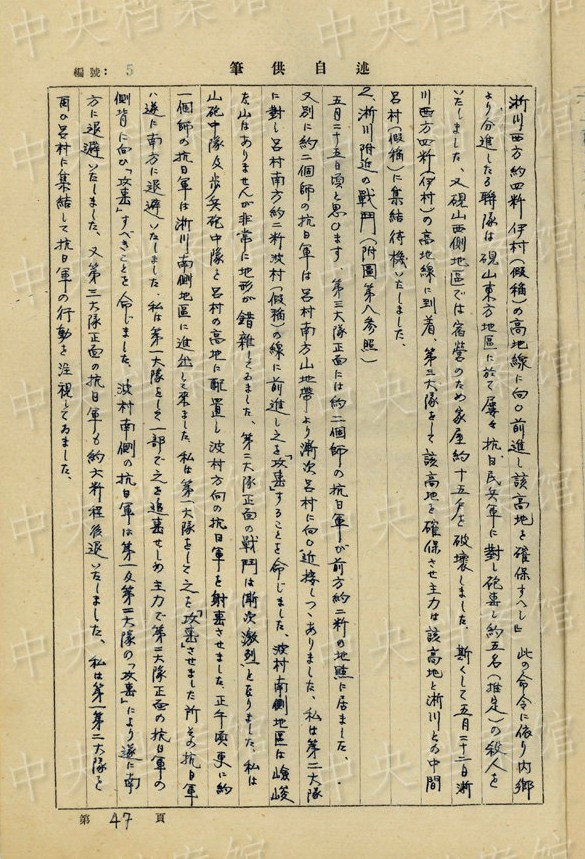 中央档案馆
編號：5
筆供自述
淅川西方約四粁伊村(假稱)の高地線に向ひ前進し該高地を確保すべし』此の命令に依り内鄉
より分進したる聯隊は硯山東方地區に於て屡々抗日民兵軍に對し砲轟し約五名(推定)の殺人を
いたしました、又硯山西側地區では宿營のため家屋約十五戶を破壞しました。斯くして五月二十二日淅
川西方四粁(伊村)の高地線に到着、第三大隊をして該高地を確保させ主力は該高地と淅川との中間
呂村(假稱)に集結待機いたしました。
2、淅川附近の戰鬥(附圖第八參照)
五月二十五日頃と思ひます。第三大隊正面には約二個師の抗日軍が前方約二粁の地點に居ました、
又別に約二個師の抗日軍は呂村南方山地帶より漸次呂村に向ひ近接しつゝありました、私は第二大隊
に對し呂村南方約二粁波村(假稱)の線に前進し之を「攻轟」することを命じました、波村南側地區は嶮峻
な山はありませんが非常に地形が錯雜してゐました、第二大隊正面の戰鬥は漸次激烈となりました、私は
山砲中隊及步兵砲中隊を呂村の高地に配置し波村方向の抗日軍を射轟させました、正午頃更に約
一個師の抗日軍は淅川南側地區に進出して來ました、私は第一大隊をして之を「攻轟」させました所その抗日軍
は遂に南方に退避いたしました、私は第一大隊をして一部で之を追轟せしめ主力で第二大隊正面の抗日軍の
側背に向ひ「攻轟」すべきことを命じました、波村南側の抗日軍は第一及第二大隊の「攻轟」により遂に南
方に退避いたしました、又第三大隊正面の抗日軍も約六粁程後退いたしました、私は第一第二大隊を
再ひ呂村に集結して抗日軍の行動を注視してゐました、
第47頁